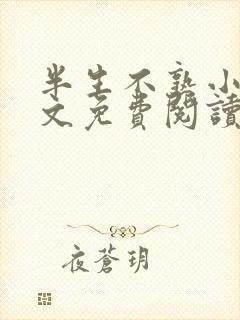 半生不熟小
文免費閱讀
夜蒼玥